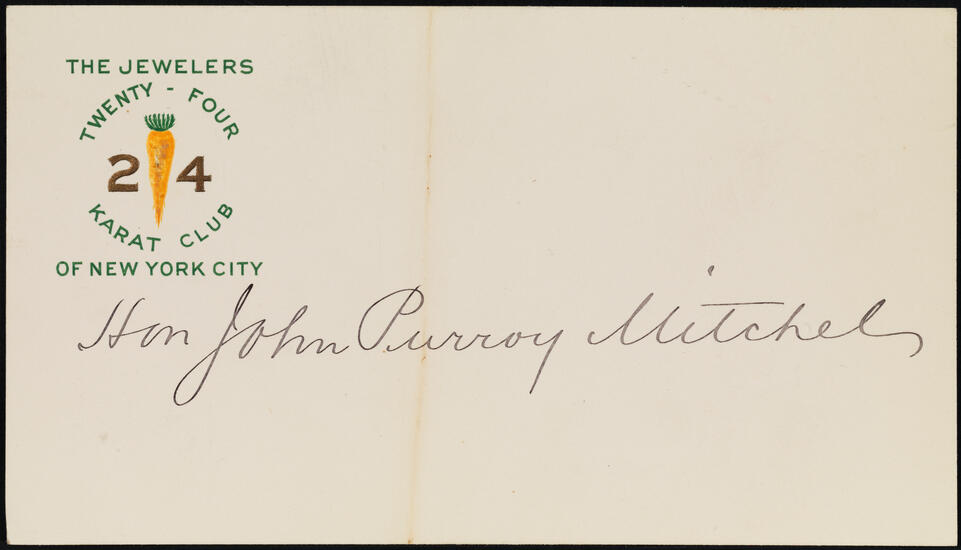 THE JEWELERS
TWENTY-FOUR
24
KARAT CLUB
OF NEW YORK CITY
Hon John Purroy Mitchel